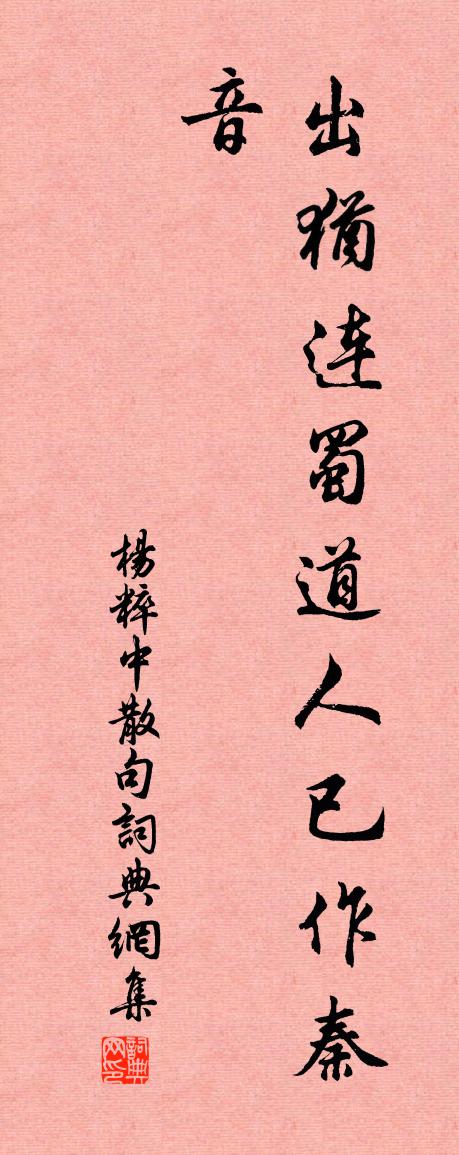 出猶連蜀道人已作秦
音
楊粹中散句詞典網集
詞典网印